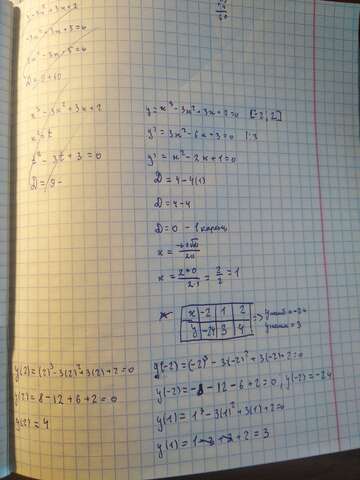 D = 9 + 60
x³ - 3x² + 3x + 2
x² = t
t² - 3t + 3 = 0
D = 9 -
y = x³ - 3x² + 3x + 2 = 0 [-2; 2]
y' = 3x² - 6x + 3 = 0 | :3
y' = x² - 2x + 1 = 0
D = 4 - 4(1)
D = 4 - 4
D = 0 - 1 корень
x = 
x = 2+0/2·1 = 2/2 = 1
x | -2 | 1 | 2
y | -24 | 3 | 4
=> yнаиб = -24
yнаим = 3
y(2) = (2)³ - 3(2)² + 3(2) + 2 = 0
y(2) = 8 - 12 + 6 + 2 = 0
y(2) = 4
y(-2) = (-2)³ - 3(-2)² + 3(-2) + 2 = 0
y(-2) = -8 - 12 - 6 + 2 = 0, y(-2) = -24
y(1) = 1³ - 3(1)² + 3(1) + 2 = 0
y(1) = 1 - 3 + 3 + 2 = 3